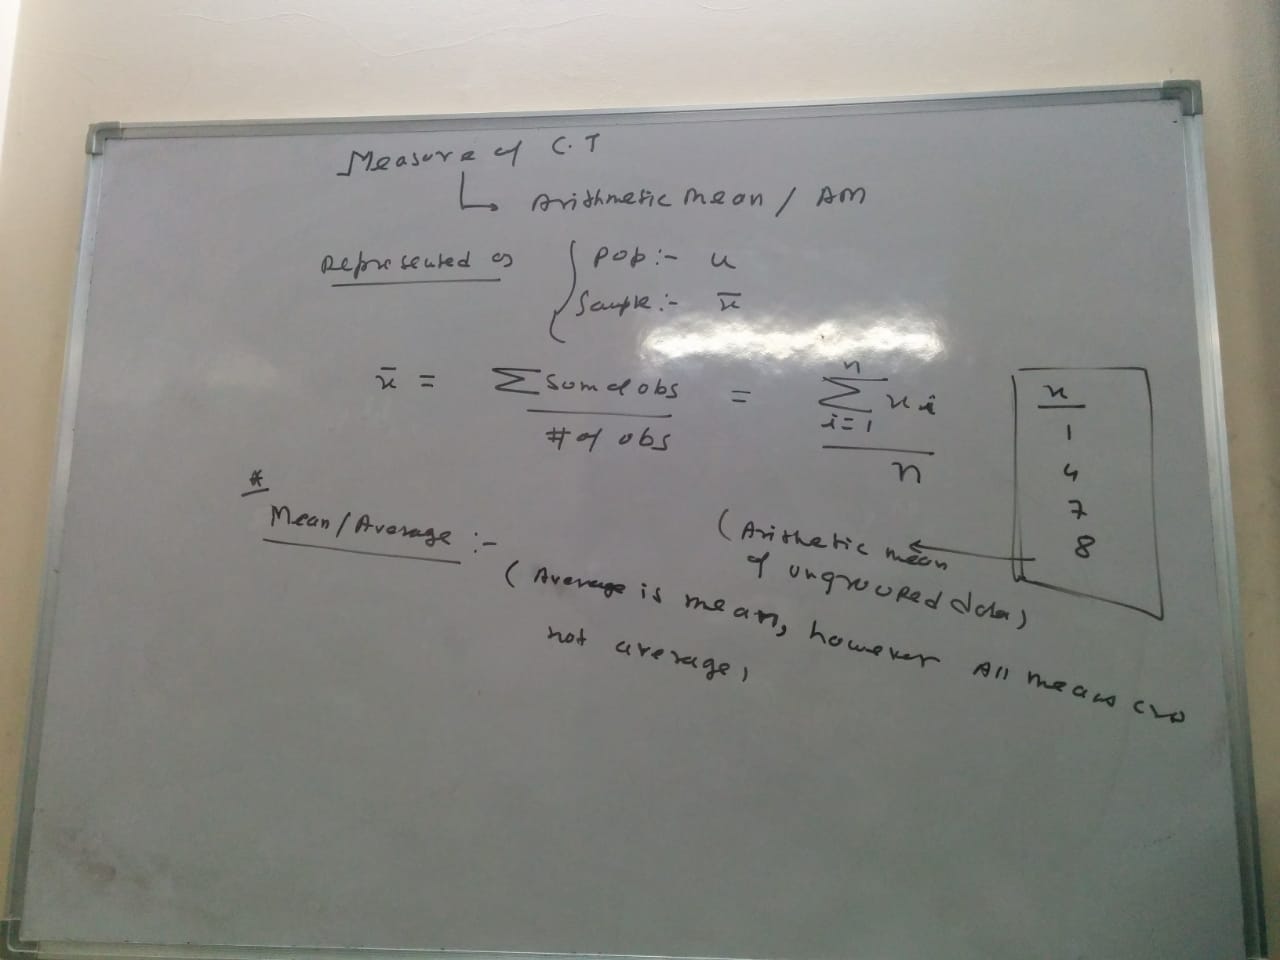 Measure of C.T
↳ Arithmetic Mean / AM
Represented as { Pop :- u
Sample :- x̄
x̄ = Σ Sum of obs / # of obs = Σ xi / n
n
i=1
x
1
4
7
8
*
Mean/Average :-
(Arithetic mean
of ungrouped data)
(Average is mean, however All means are
not average,